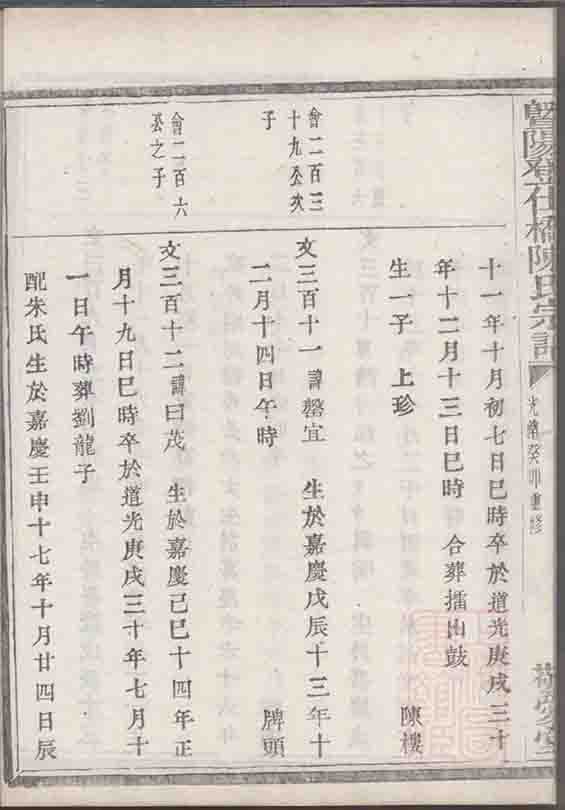 暨陽登仕橋陳氏宗譜
光緒癸卯重修
十一年十月初七日巳時卒於道光庚戌三十
年十二月十三日巳時 合葬擂山鼓
生一子 上珍 陳樸
會二百三
十九公次
子
文三百十一 諱罄宜 生於嘉慶戊辰十三年十
二月十四日午時 牌頭
會二百六
公之子
文三百十二 諱曰茂 生於嘉慶己巳十四年正
月十九日巳時卒於道光庚戌三十年七月十
一日午時葬劉龍子
配朱氏生於嘉慶壬申十七年十月廿四日辰